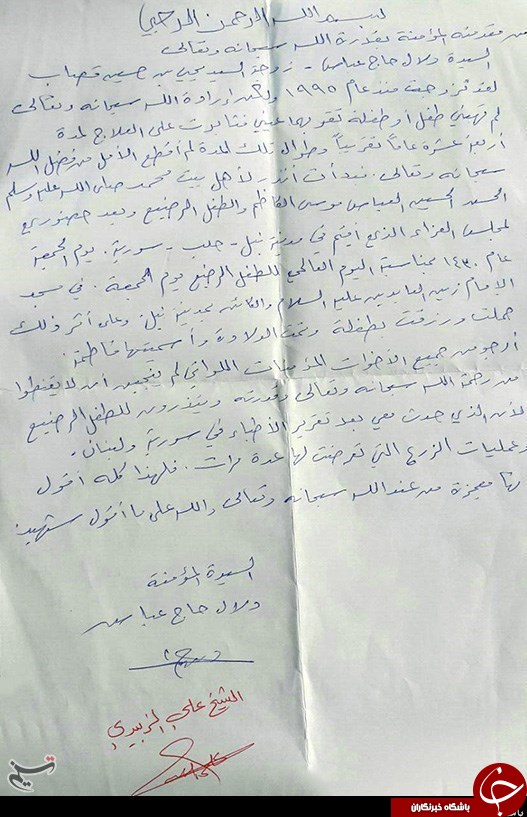 بسم الله الرحمن الرحيم
من مقدمته المؤمنة بقدرة الله سبحانه وتعالى
السيدة دلال حاج عباس - زوجة السيد يحيى بن حسين قصاب
لقد تزوجت منذ عام ١٩٩٥ ولكن إرادة الله سبحانه وتعالى
لم تهبني طفل أو طفلة تقر بها عيني فثابرت على العلاج لمدة
أربعة عشرة عاماً تقريباً وطوال تلك المدة لم أقطع الأمل من فضل الله
سبحانه وتعالى. فبدأت أنذر لأهل بيت محمد صلى الله عليه وسلم
الحسين العباس موسى الكاظم والطفل الرضيع وبعد حضوري
لمجلس العزاء الذي أقيم في مدينة نبل - حلب - سورية. يوم الجمعة
عام ١٤٣٠ بمناسبة اليوم العالمي للطفل الرضيع يوم الجمعة. في مسجد
الإمام زين العابدين عليه السلام والكائن بمدينة نبل. وعلى أثر ذلك
حملت ورزقت بطفلة وتمت الولادة وأسميتها فاطمة.
أرجو من جميع الأخوات المؤمنات اللواتي لم ينجبن أن لا يقنطوا
من رحمة الله سبحانه وتعالى وقدرته وينذرون للطفل الرضيع
لأن الذي حدث معي بعد تقرير الأطباء في سورية ولبنان.
وعمليات الزرع التي تعرضت لها عدة مرات. فلهذا كله أقول
لها معجزة من عند الله سبحانه وتعالى والله على ما أقول شهيد
السيدة المؤمنة
دلال حاج عباس
الشيخ علي الزبيدي
تسنیم
باشگاه خبرنگاران